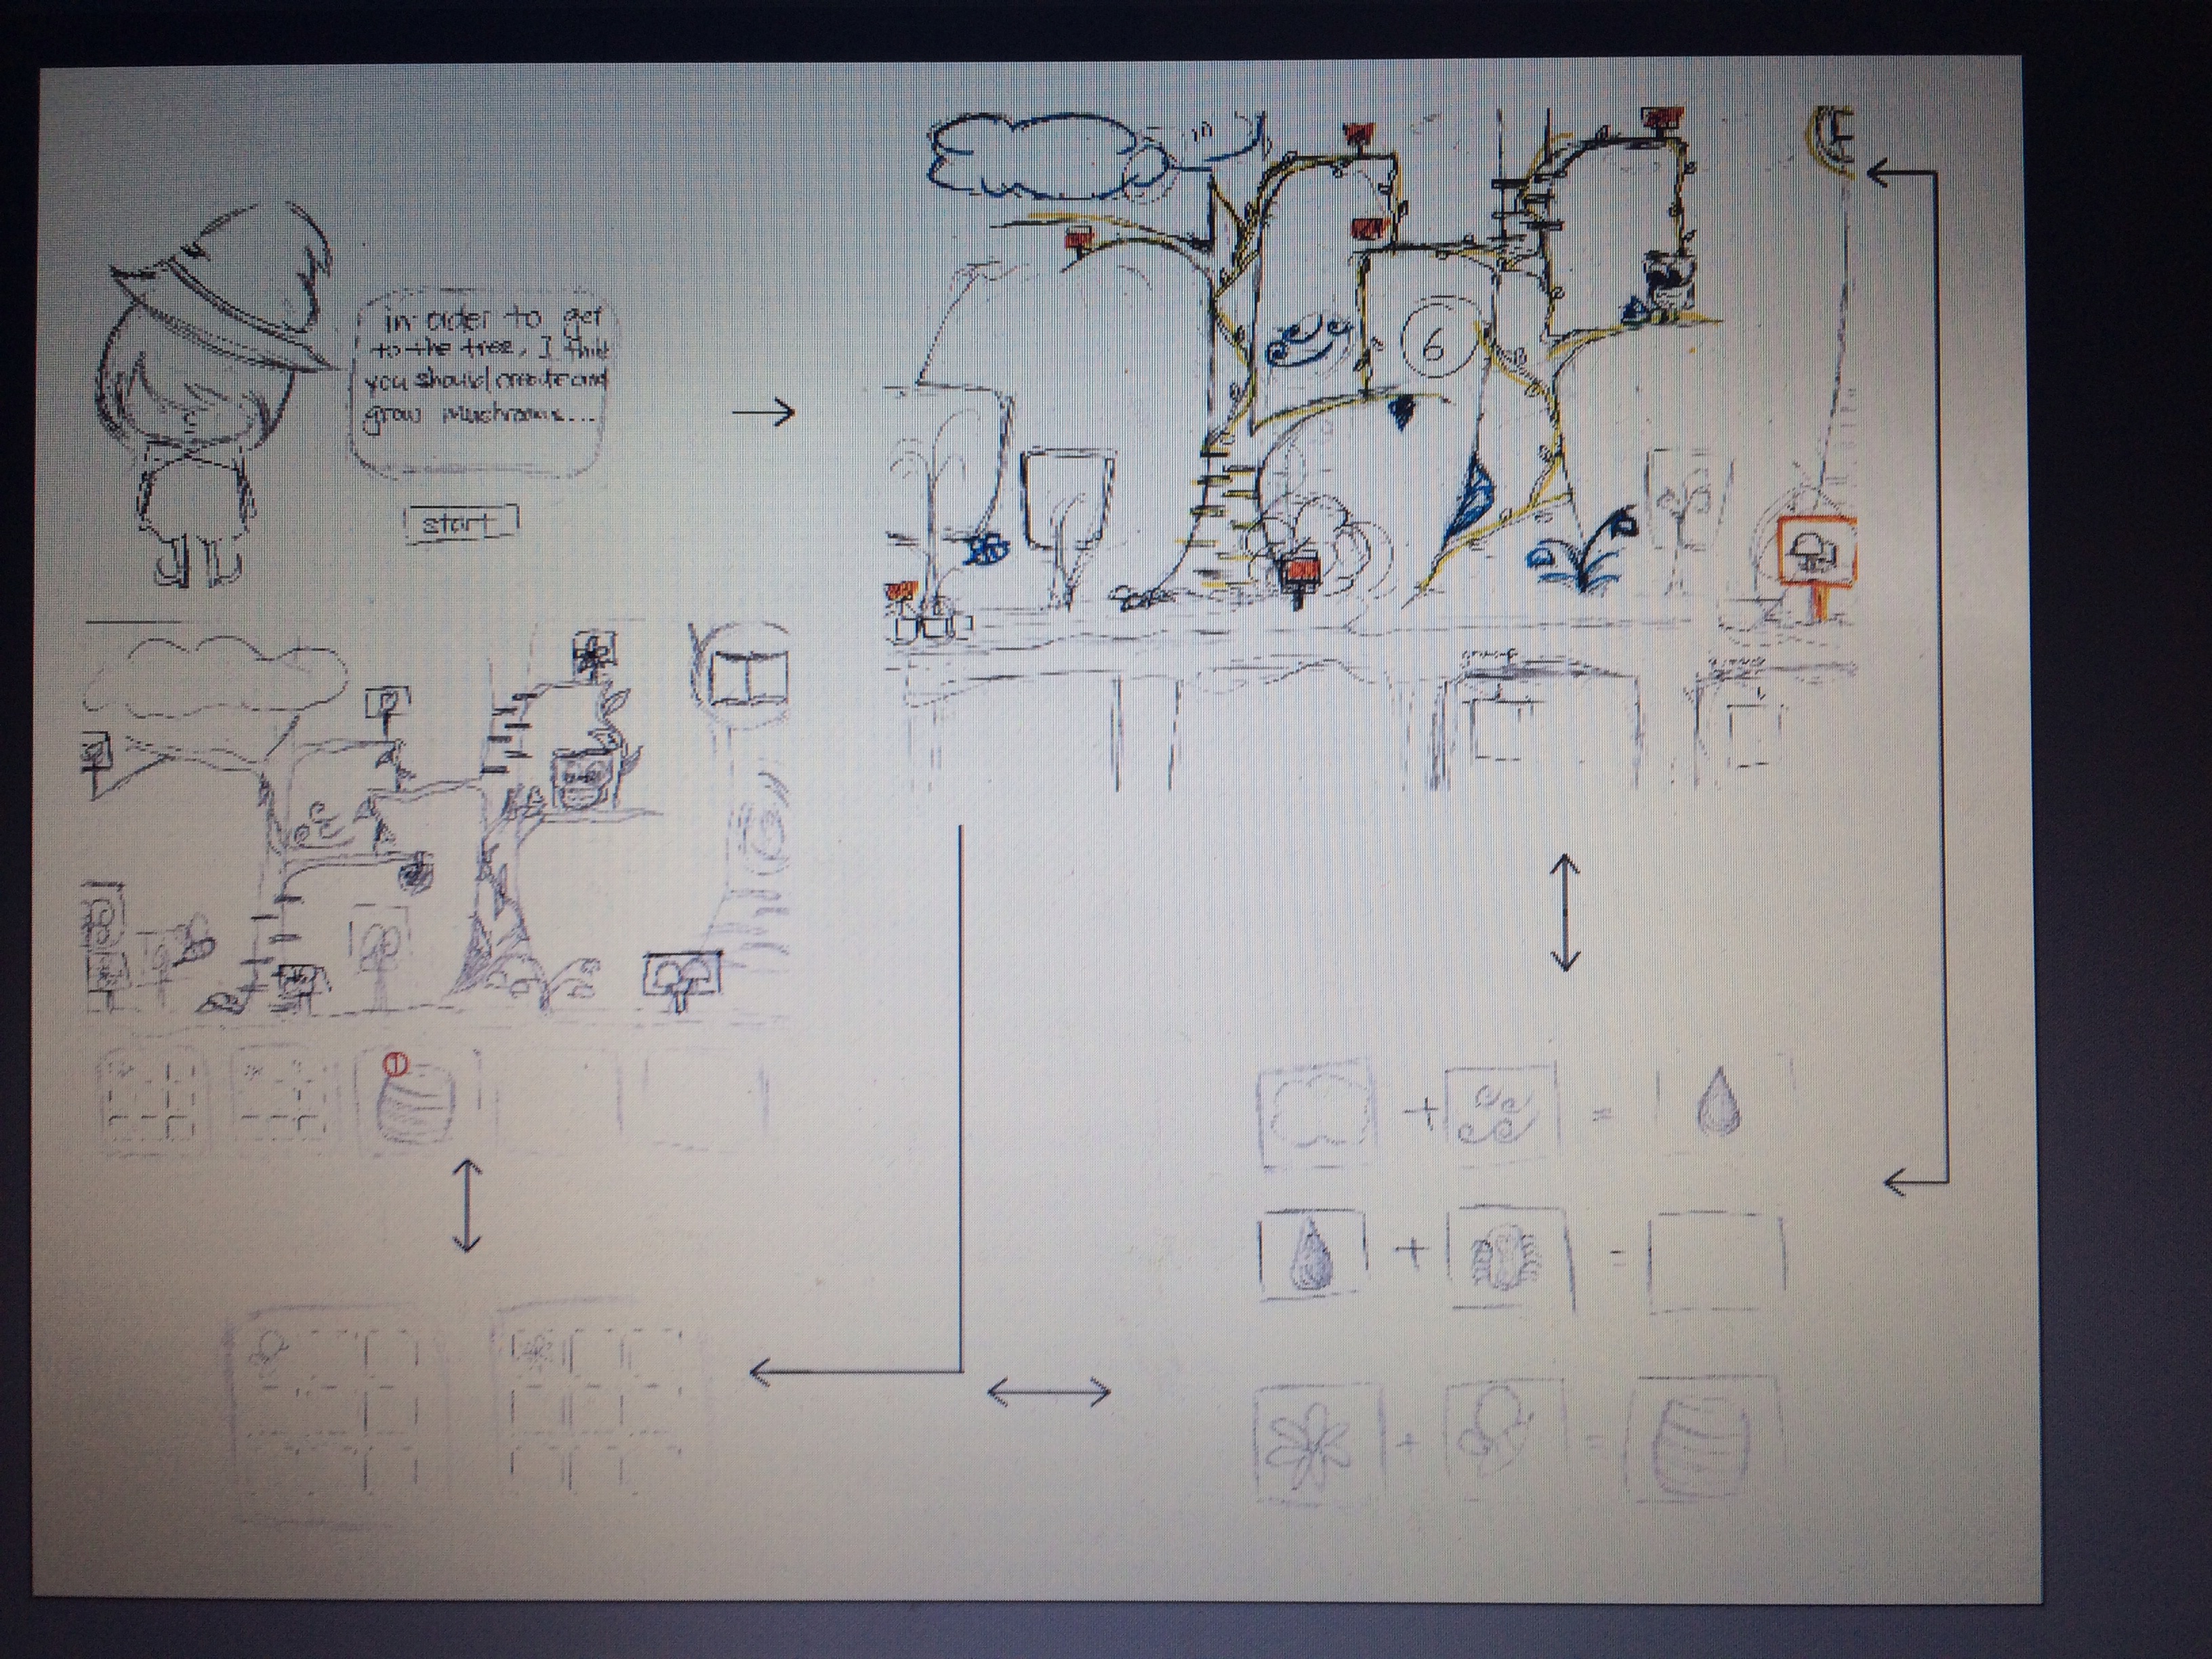 in order to get
to the tree, I think
you should create and
grow mushrooms...
start
6
+
=
+
=
+
=
1